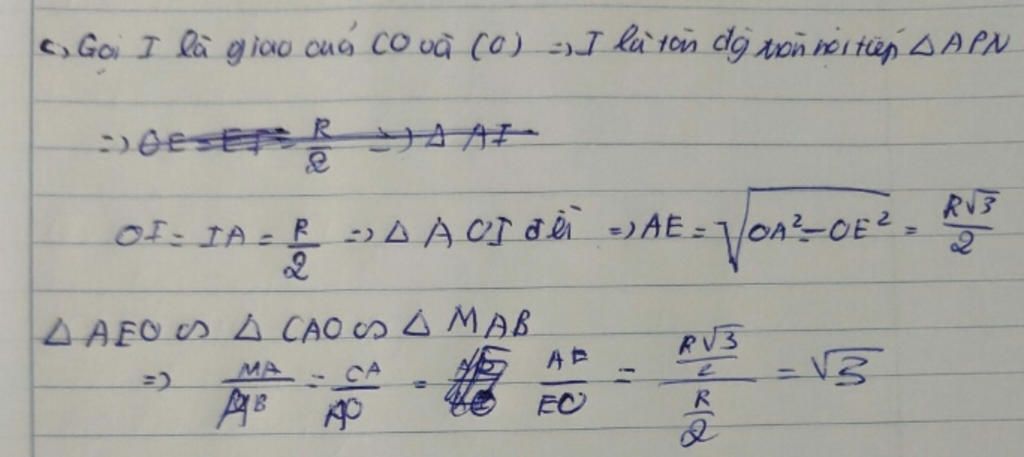 c, Gọi I là giao cuả CO và (O) => I là tâm đg tròn nội tiếp △ APN
=> OE = EI = R/2 => △ AI
OI = IA = R/2 => △ AOI đều => AE = √(OA² - OE²) = R√3/2
△ AEO ∽ △ CAO ∽ △ MAB
=> MA/AB = CA/AO = AE/EO = (R√3/2)/(R/2) = √3